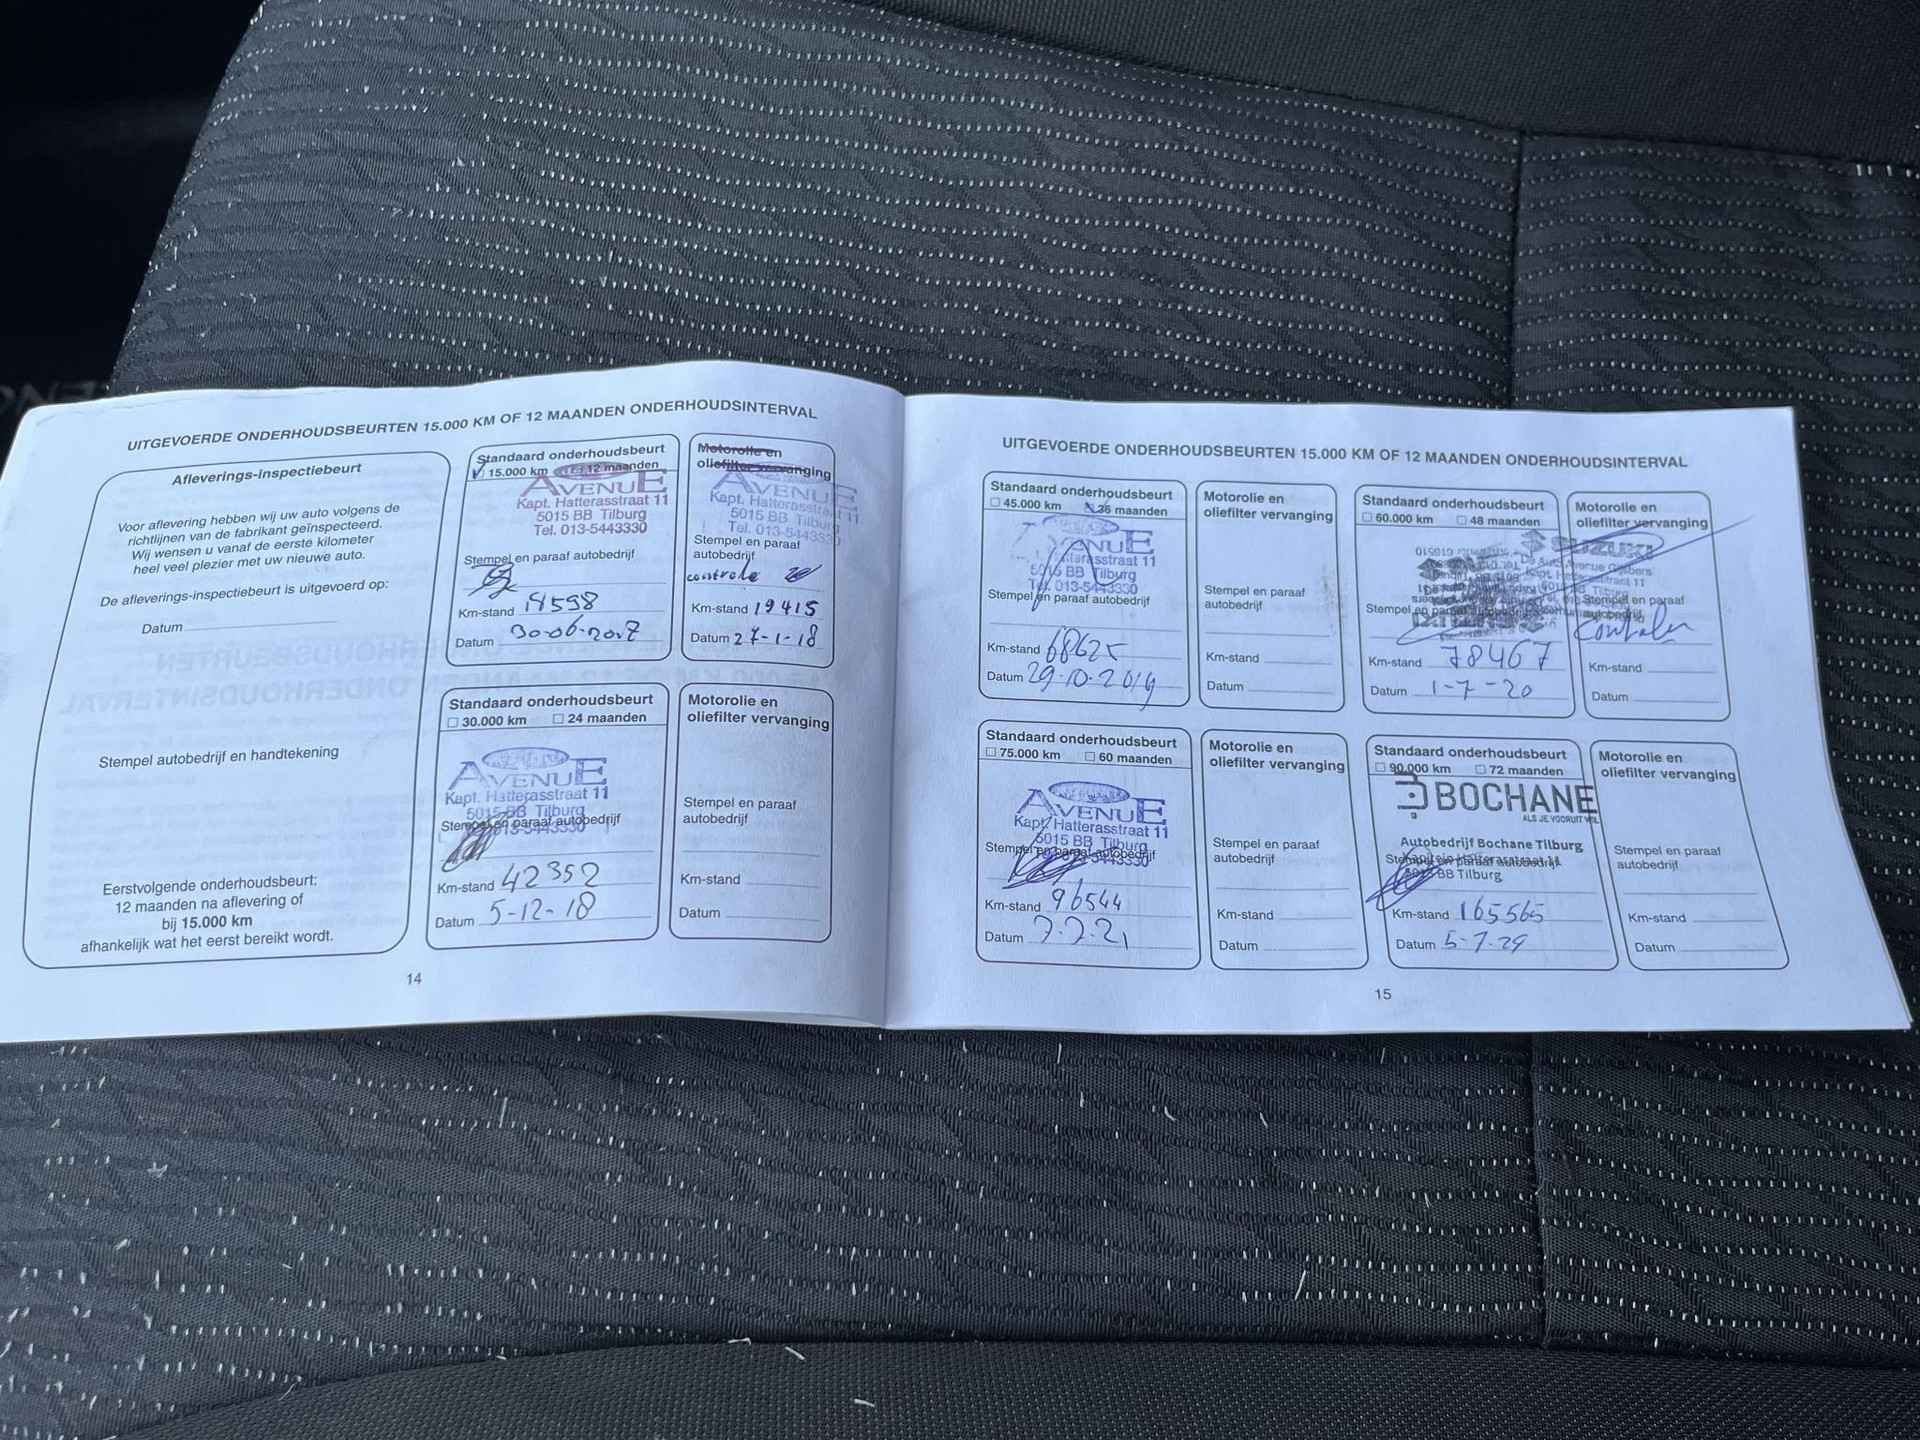 UITGEVOERDE ONDERHOUDSBEURTEN 15.000 KM OF 12 MAANDEN ONDERHOUDSINTERVAL
Afleverings-inspectiebeurt
Voor aflevering hebben wij uw auto volgens de
richtlijnen van de fabrikant geïnspecteerd.
Wij wensen u vanaf de eerste kilometer
heel veel plezier met uw nieuwe auto.
De afleverings-inspectiebeurt is uitgevoerd op:
Datum
Stempel autobedrijf en handtekening
Eerstvolgende onderhoudsbeurt:
12 maanden na aflevering of
bij 15.000 km
afhankelijk wat het eerst bereikt wordt.
Standaard onderhoudsbeurt
15.000 km 12 maanden
AVENUE
Kapt. Hatterasstraat 11
5015 BB Tilburg
Tel. 013-5443330
Stempel en paraaf autobedrijf
Km-stand
Datum 30-06-2017
Motorolie en
oliefilter vervanging
AVENUE
Kapt. Hatterasstraat 11
5015 BB Tilburg
Tel. 013-5443330
Stempel en paraaf
autobedrijf
controle
Km-stand 19415
Datum 27-1-18
Standaard onderhoudsbeurt
30.000 km 24 maanden
AVENUE
Kapt. Hatterasstraat 11
5015 BB Tilburg
Stempel en paraaf autobedrijf
013-5443330
Km-stand 42352
Datum 5-12-18
Motorolie en
oliefilter vervanging
Stempel en paraaf
autobedrijf
Km-stand
Datum
14
UITGEVOERDE ONDERHOUDSBEURTEN 15.000 KM OF 12 MAANDEN ONDERHOUDSINTERVAL
Standaard onderhoudsbeurt
45.000 km 36 maanden
AVENUE
Hatterasstraat 11
5015 BB Tilburg
Tel. 013-5443330
Stempel en paraaf autobedrijf
Km-stand 68625
Datum 29-10-2019
Motorolie en
oliefilter vervanging
Stempel en paraaf
autobedrijf
Km-stand
Datum
Standaard onderhoudsbeurt
60.000 km 48 maanden
Stempel en paraaf autobedrijf
Km-stand 78467
Datum 1-7-20
Motorolie en
oliefilter vervanging
SUZUKI
Stempel en paraaf
autobedrijf
Km-stand
Datum
Standaard onderhoudsbeurt
75.000 km 60 maanden
AVENUE
Kapt. Hatterasstraat 11
5015 BB Tilburg
Stempel en paraaf autobedrijf
Km-stand 96544
Datum 7.7.21
Motorolie en
oliefilter vervanging
Stempel en paraaf
autobedrijf
Km-stand
Datum
Standaard onderhoudsbeurt
90.000 km 72 maanden
BOCHANE
ALS JE VOORUIT WIL
Autobedrijf Bochane Tilburg
Stempel en paraaf autobedrijf
Kapitein Hatterasstraat 11
5015 BB Tilburg
Km-stand 165565
Datum
Motorolie en
oliefilter vervanging
Stempel en paraaf
autobedrijf
Km-stand
Datum
15